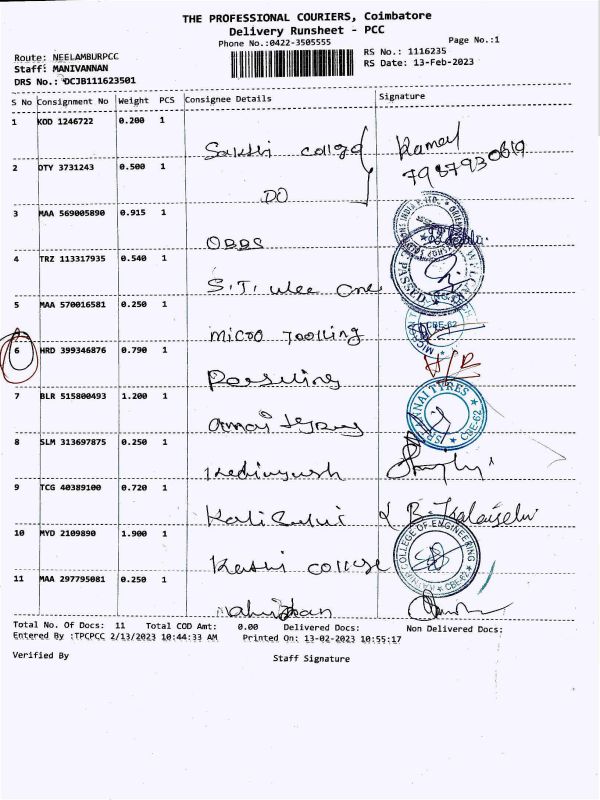 THE PROFESSIONAL COURIERS, Coimbatore
Delivery Runsheet - PCC
Phone No.:0422-3505555
Page No.:1
Route: NEELAMBURPCC
RS No.: 1116235
Staff: MANIVANNAN
RS Date: 13-Feb-2023
DRS No.: DCJB111623501
S No Consignment No Weight PCS Consignee Details Signature
1 KOD 1246722 0.200 1
Sakthi college Kamal
7987930619
2 DTY 3731243 0.500 1
DO
3 MAA 569005890 0.915 1
4 TRZ 113317935 0.540 1
S.T.
5 MAA 570016581 0.250 1
micro Toolling
CBE-62
6 HRD 399346876 0.790 1
7 BLR 515800493 1.200 1
TYRES
CBE-62
8 SLM 313697875 0.250 1
9 TCG 40389100 0.720 1
10 MYD 2109890 1.900 1
college
COLLEGE OF ENGINEERING
CBE-62
11 MAA 297795081 0.250 1
Total No. Of Docs: 11 Total COD Amt: 0.00 Delivered Docs: Non Delivered Docs:
Entered By :TPCPCC 2/13/2023 10:44:33 AM Printed On: 13-02-2023 10:55:17
Verified By Staff Signature